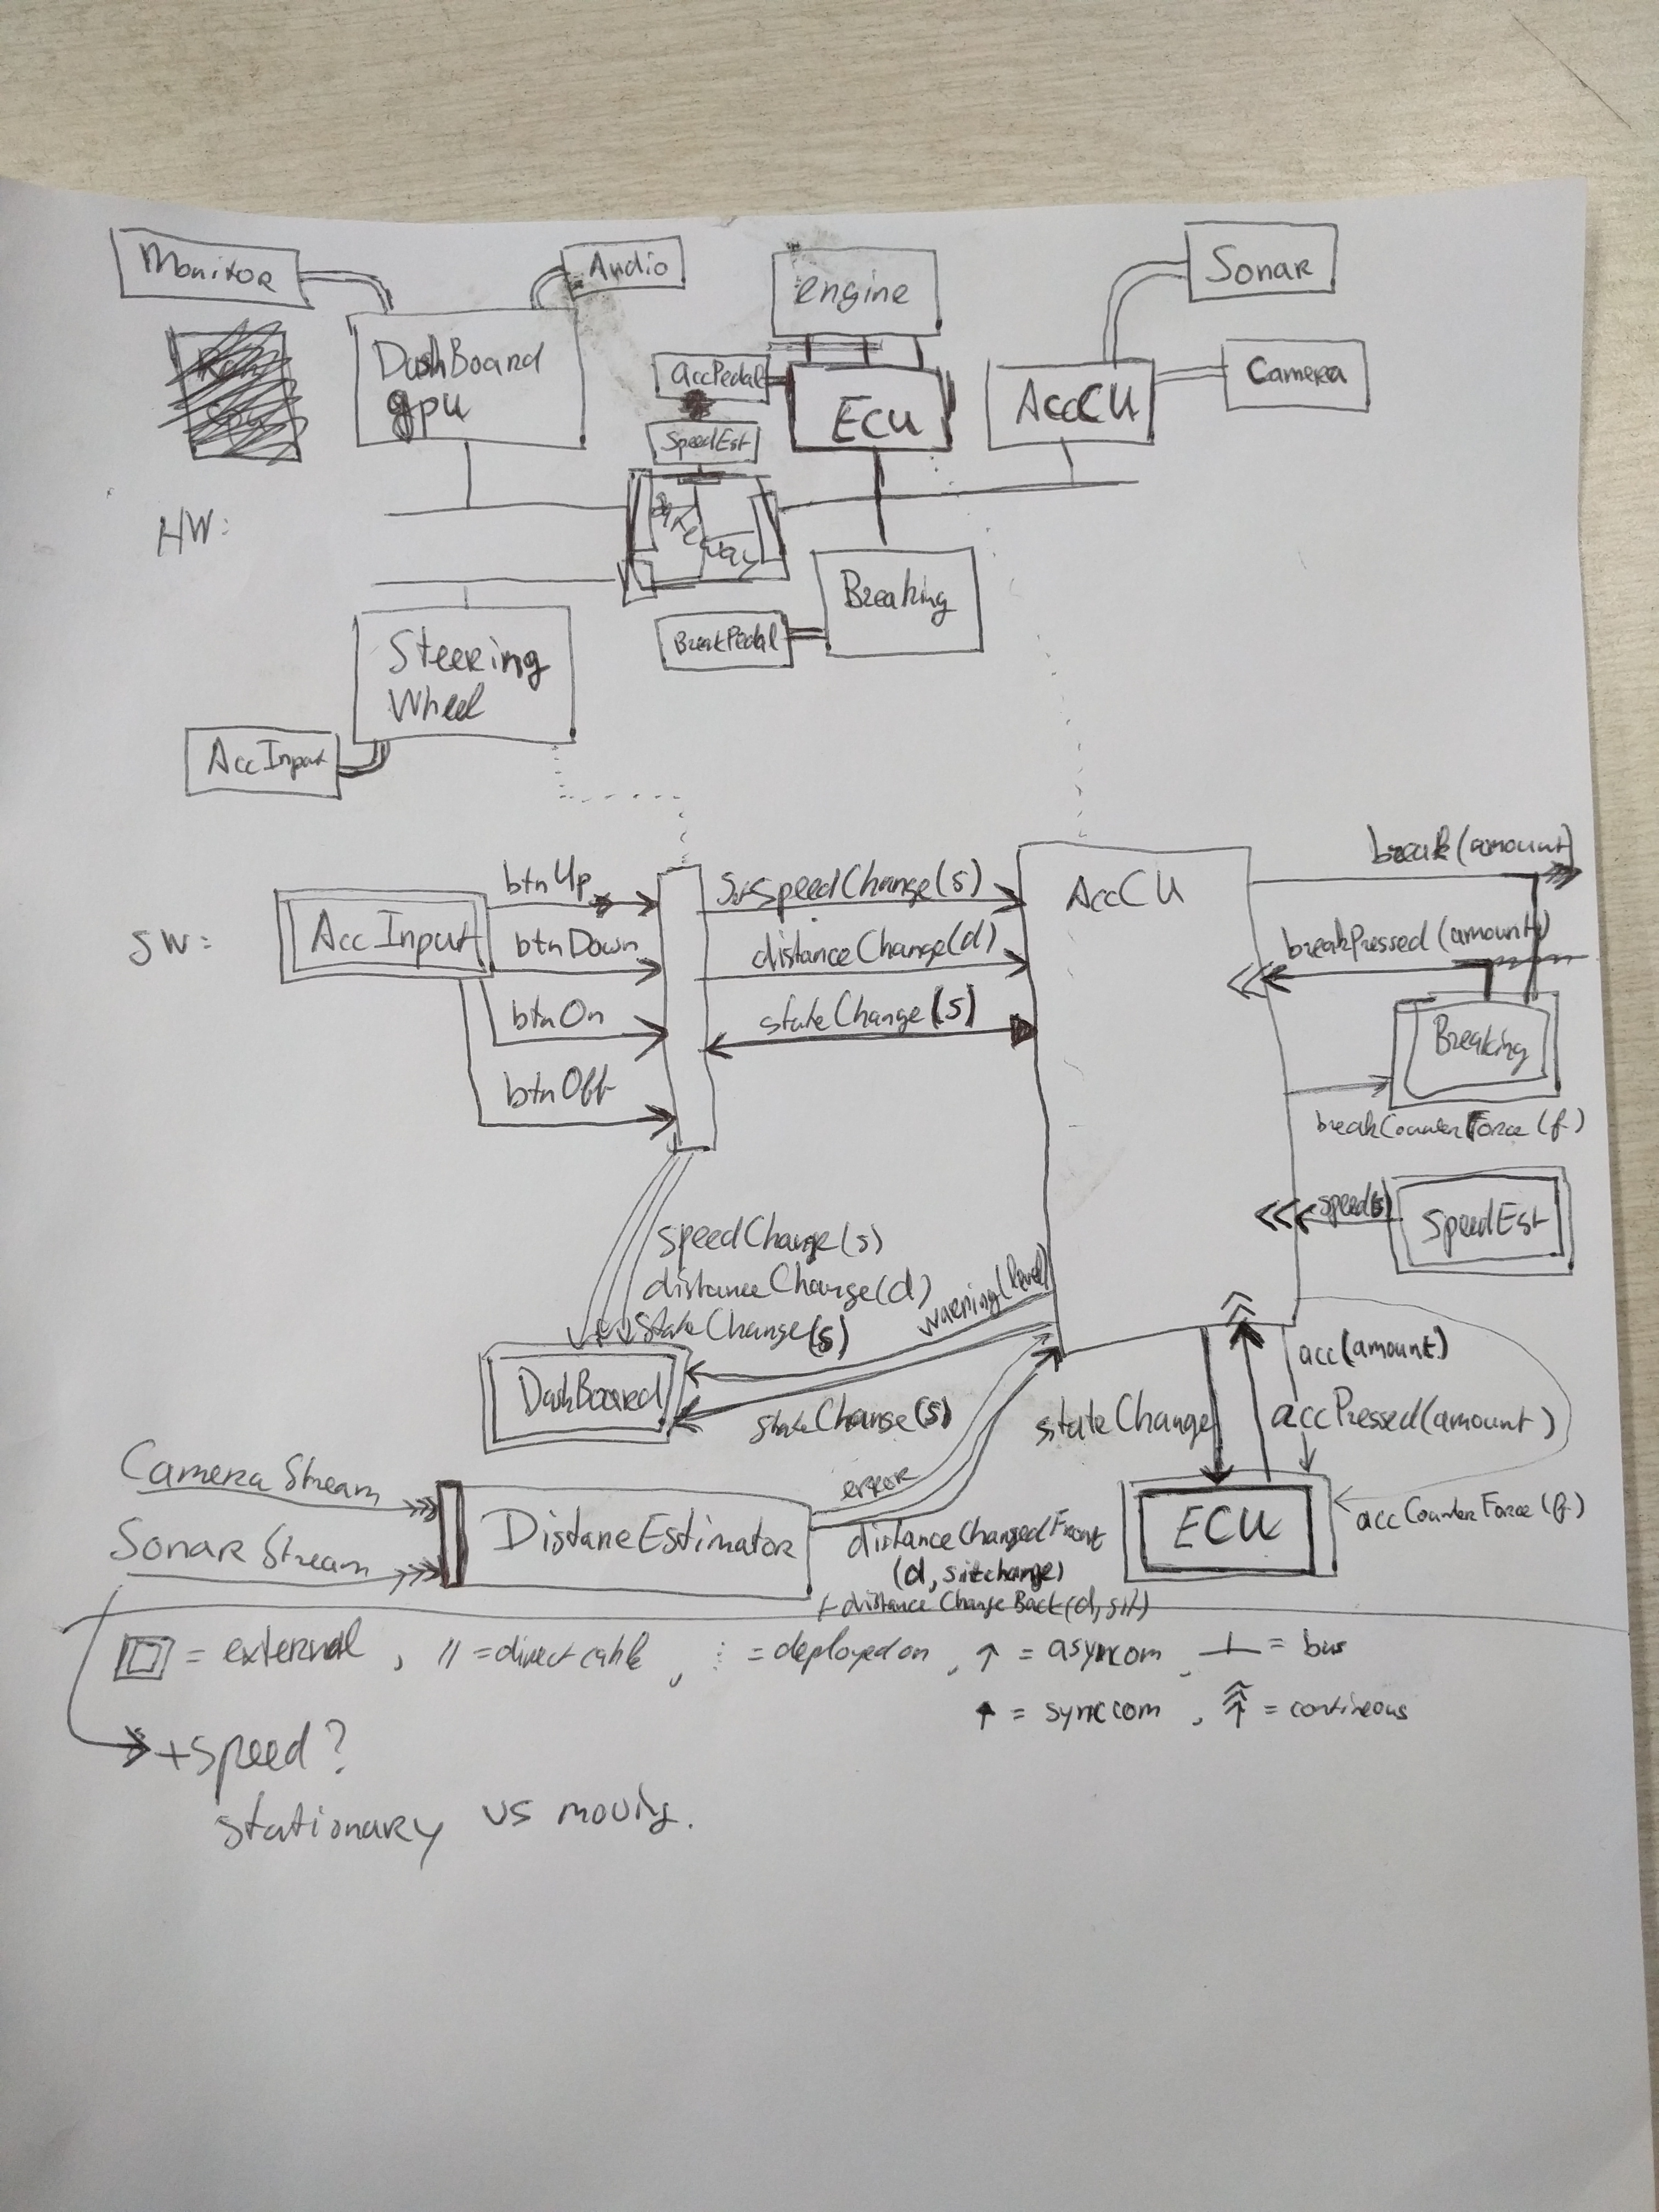 Monitor
Audio
engine
Sonar
DashBoard
gpu
AccPedal
ECU
AccCU
Camera
SpeedEst
HW:
Gateway
Breaking
BreakPedal
Steering
Wheel
AccInput
SW:
AccInput
btnUp
btnDown
btnOn
btnOff
speedChange(s)
distanceChange(d)
stateChange(s)
AccCU
break(amount)
breakPressed(amount)
Breaking
breakCounterForce(f)
speed(s)
SpeedEst
speedChange(s)
distanceChange(d)
stateChange(s)
warning(level)
DashBoard
stateChange(s)
stateChange
acc(amount)
accPressed(amount)
Camera Stream
Sonar Stream
DistaneEstimator
error
distanceChangedFront
(d, sitchange)
+ distanceChangeBack(d, sit)
ECU
accCounterForce(f)
= external , // = direct cable , = deployed on , ↑ = asyncom , ⊥ = bus
↑ = synccom , = contineous
+speed?
stationary vs moving.